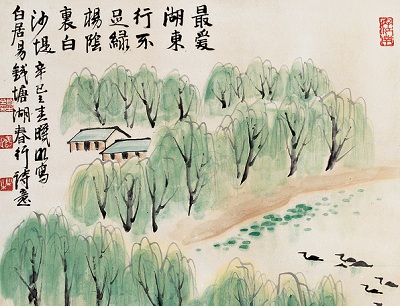 最爱
湖東
行不
足綠
楊陰
裏白
沙堤 辛巳之春 寫
白居易錢塘湖春行詩意